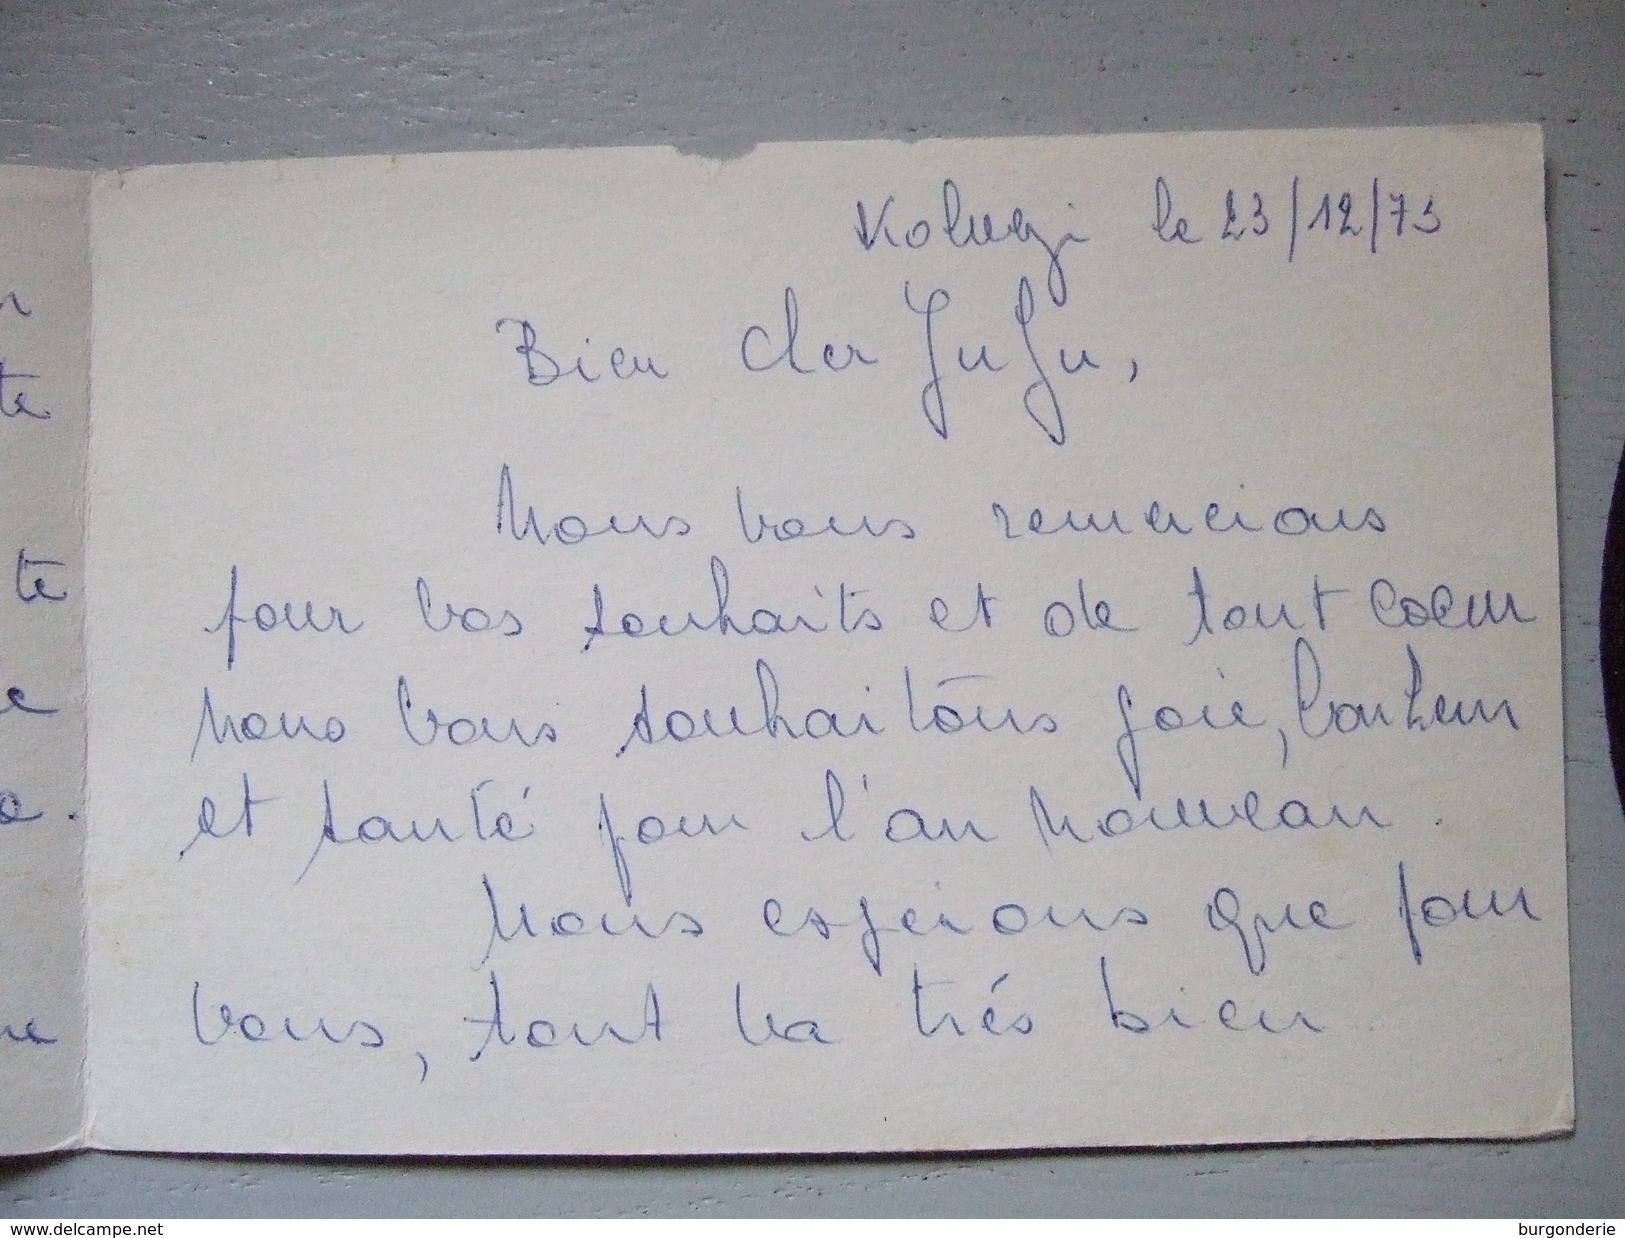 Kolwezi le 23/12/73
Bien cher JuJu,
Nous vous remercions
pour vos souhaits et de tout coeur
nous vous souhaitons joie, bonheur
et santé pour l'an nouveau.
Nous espérons que pour
vous, tout va trés bien
te
te
e
www.delcampe.net
burgonderie